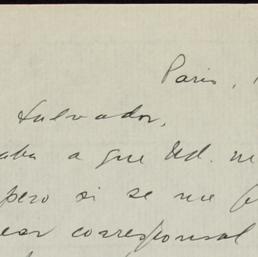 Paris,
Salvador,
aba a que Ud. me
pero si se me
ear corresponsal